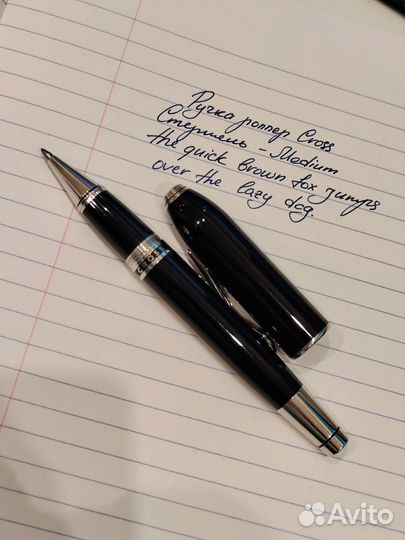 Ручка роллер Cross
Стержень - Medium
the quick brown fox jumps
over the lazy dog.
CROSS
Avito